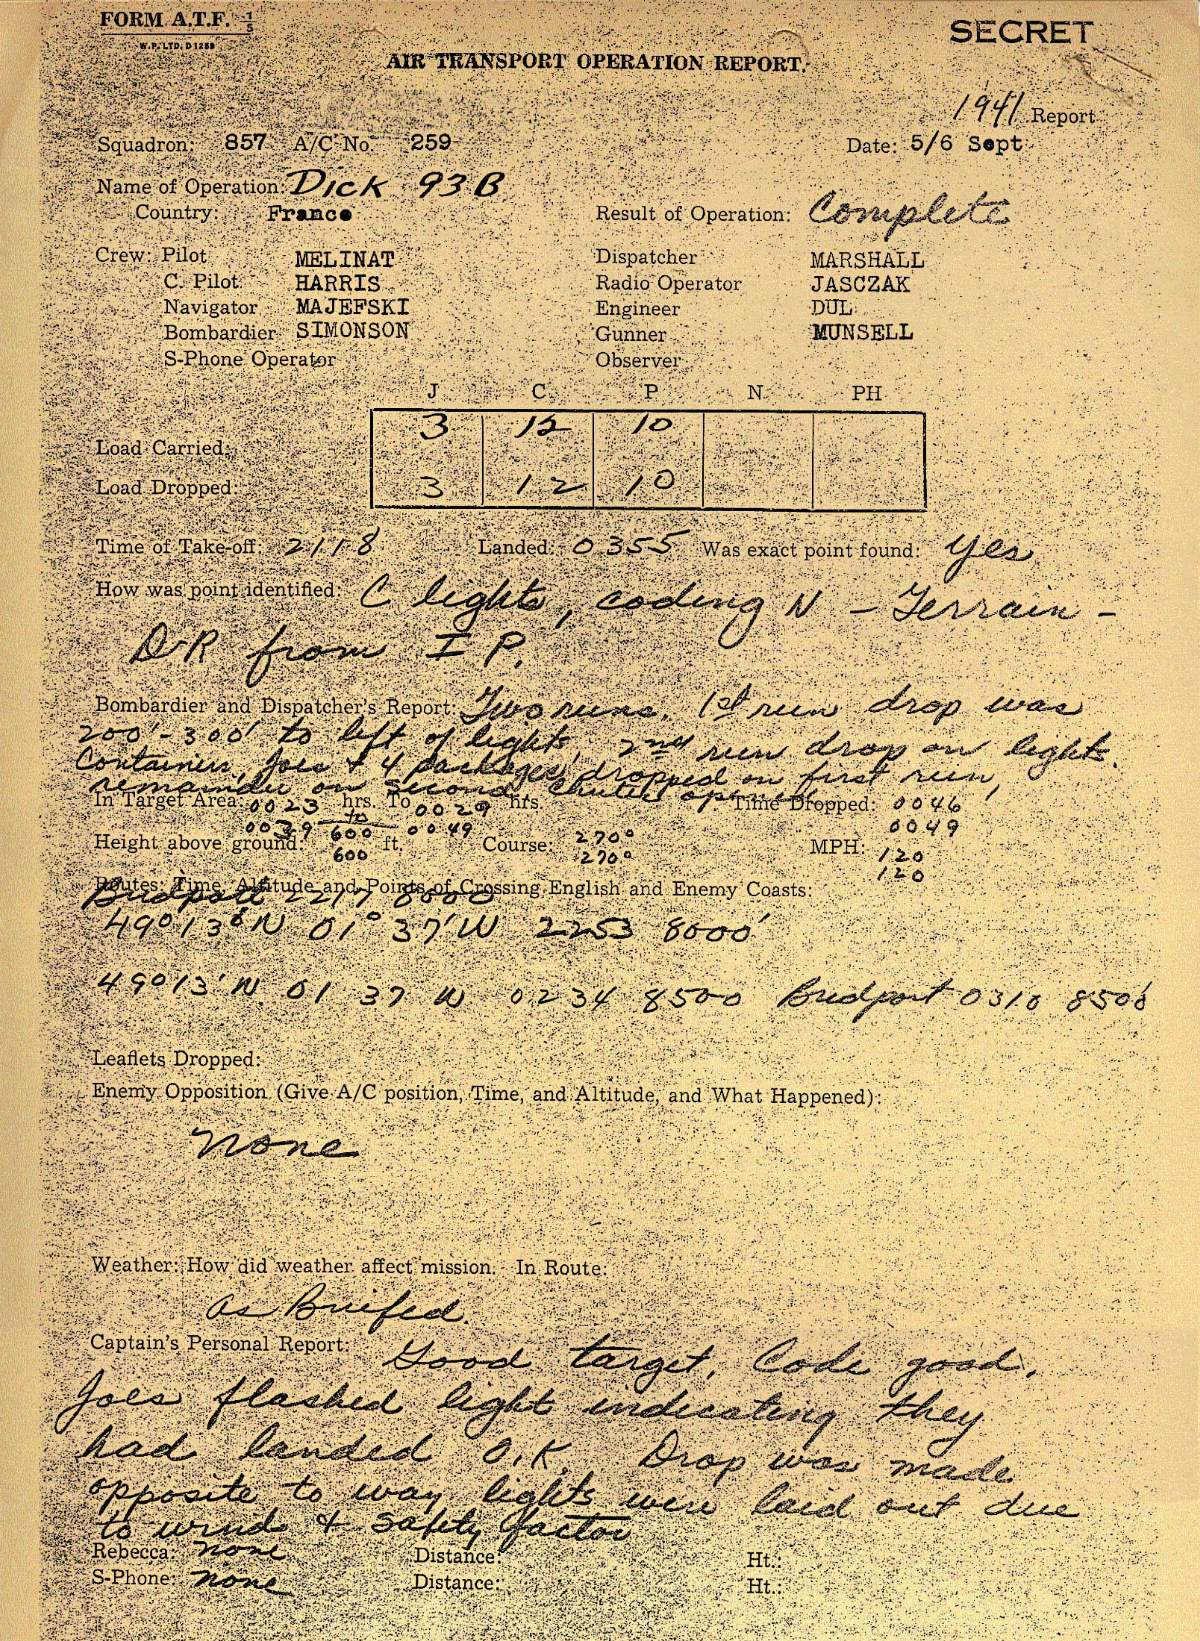 FORM A.T.F. 1/5
W.P. LTD. D1259
SECRET
AIR TRANSPORT OPERATION REPORT.
1941 Report
Squadron: 857 A/C No. 259 Date: 5/6 Sept
Name of Operation: Dick 93B
Country: France Result of Operation: Complete
Crew: Pilot MELINAT Dispatcher MARSHALL
C. Pilot HARRIS Radio Operator JASCZAK
Navigator MAJEFSKI Engineer DUL
Bombardier SIMONSON Gunner MUNSELL
S-Phone Operator Observer
J C P N PH
Load Carried: 3 12 10
Load Dropped: 3 12 10
Time of Take-off: 2118 Landed: 0355 Was exact point found: yes
How was point identified: C lights, coding N - Terrain -
D-R from I P.
Bombardier and Dispatcher's Report: Two runs. 1st run drop was
200'-300' to left of lights, 2nd run drop on lights.
Containers, Joes + 4 packages dropped on first run,
remainder on second. Chutes opened
In Target Area: 0023 hrs. To 0029 hrs. Time Dropped: 0046
0039 to 0049 0049
Height above ground: 600 ft. Course: 270° MPH: 120
600 270° 120
Routes: Time, Altitude and Points of Crossing English and Enemy Coasts:
Bridport 2217 8000
49°13'N 01°37'W 2253 8000'
49°13'N 01 37 W 0234 8500 Bridport 0310 8500'
Leaflets Dropped:
Enemy Opposition (Give A/C position, Time, and Altitude, and What Happened):
None
Weather: How did weather affect mission. In Route:
as Briefed.
Captain's Personal Report: Good target. Code good.
Joes flashed light indicating they
had landed O.K. Drop was made
opposite to way lights were laid out due
to wind & safety factor
Rebecca: none Distance: Ht.:
S-Phone: none Distance: Ht.: